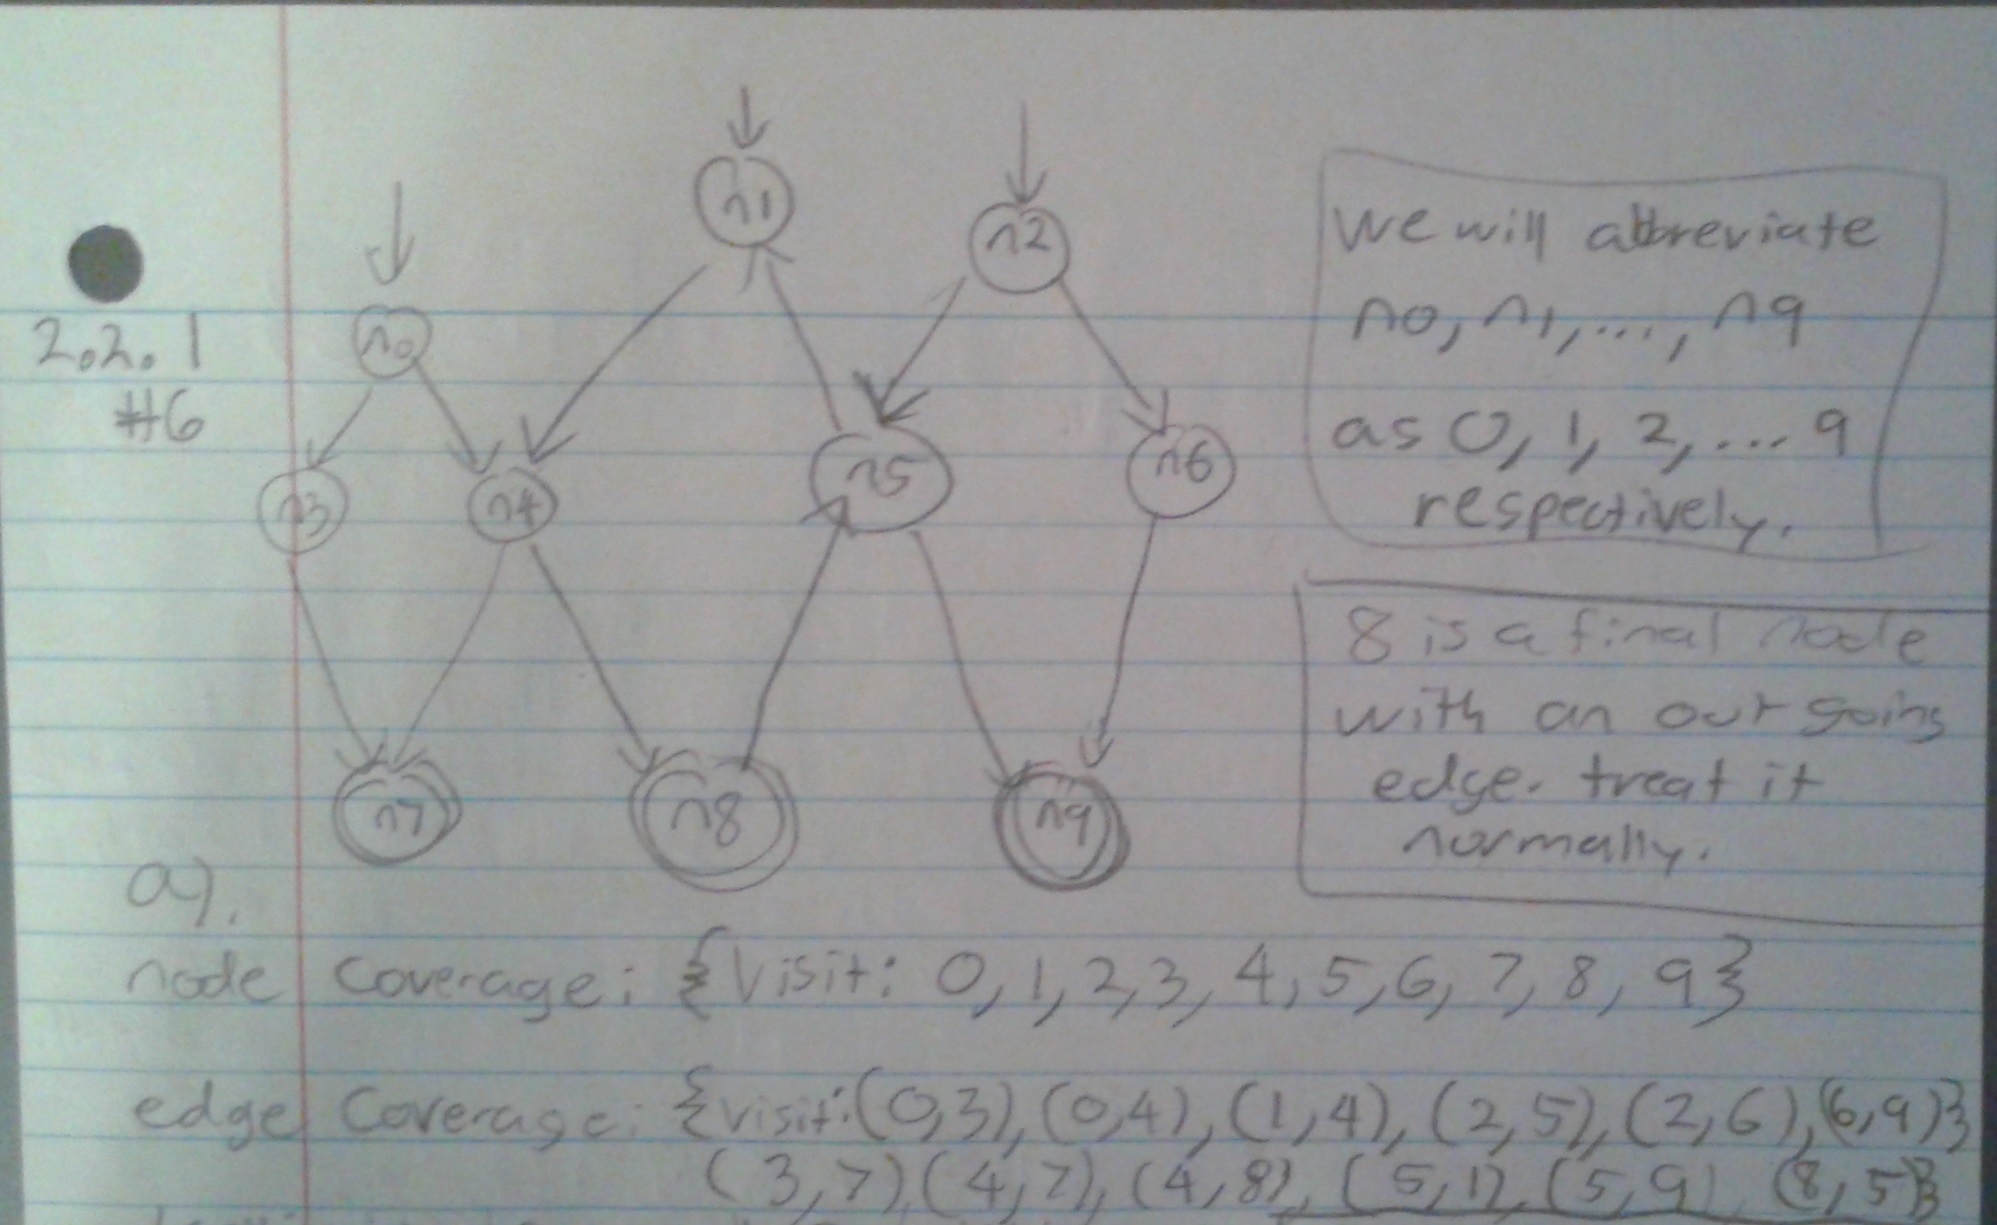 2.2.1
#6
n0
n1
n2
n3
n4
n5
n6
n7
n8
n9
We will abbreviate
n0, n1, ..., n9
as 0, 1, 2, ... 9
respectively.
8 is a final node
with an out going
edge. treat it
normally.
a).
node coverage: { Visit: 0, 1, 2, 3, 4, 5, 6, 7, 8, 9}
edge coverage: {visit: (0,3), (0,4), (1,4), (2,5), (2,6), (6,9)}
(3,7), (4,7), (4,8), (5,1), (5,9), (8,5)}